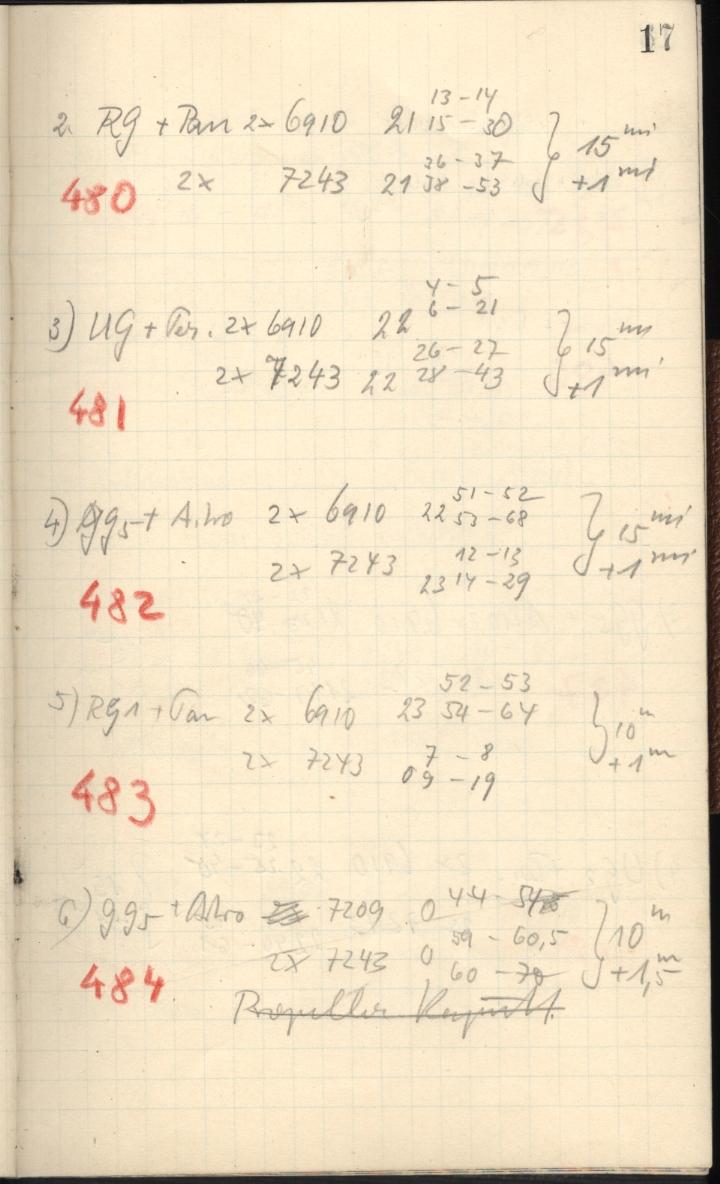 17
13 - 14
2. RG + Pan 2x 6910 21 15 - 30 } 15 mi
36 - 37
480 2x 7243 21 38 - 53 +1 mi
4 - 5
3) UG + Per. 2x 6910 22 6 - 21 } 15 mi
26 - 27
2x 7243 22 28 - 43 +1 mi
481
51 - 52
4) gg5 + Astro 2x 6910 22 53 - 68 } 15 mi
12 - 13
2x 7243 23 14 - 29 +1 mi
482
52 - 53
5) RG1 + Pan 2x 6910 23 54 - 64 } 10 m
7 - 8
2x 7243 0 9 - 19 +1 m
483
6) gg5 + Astro 7209 0 44 - 54 } 10 m
59 - 60,5
2x 7243 0 60 - 70 +1,5 m
484
Propeller kaputt.